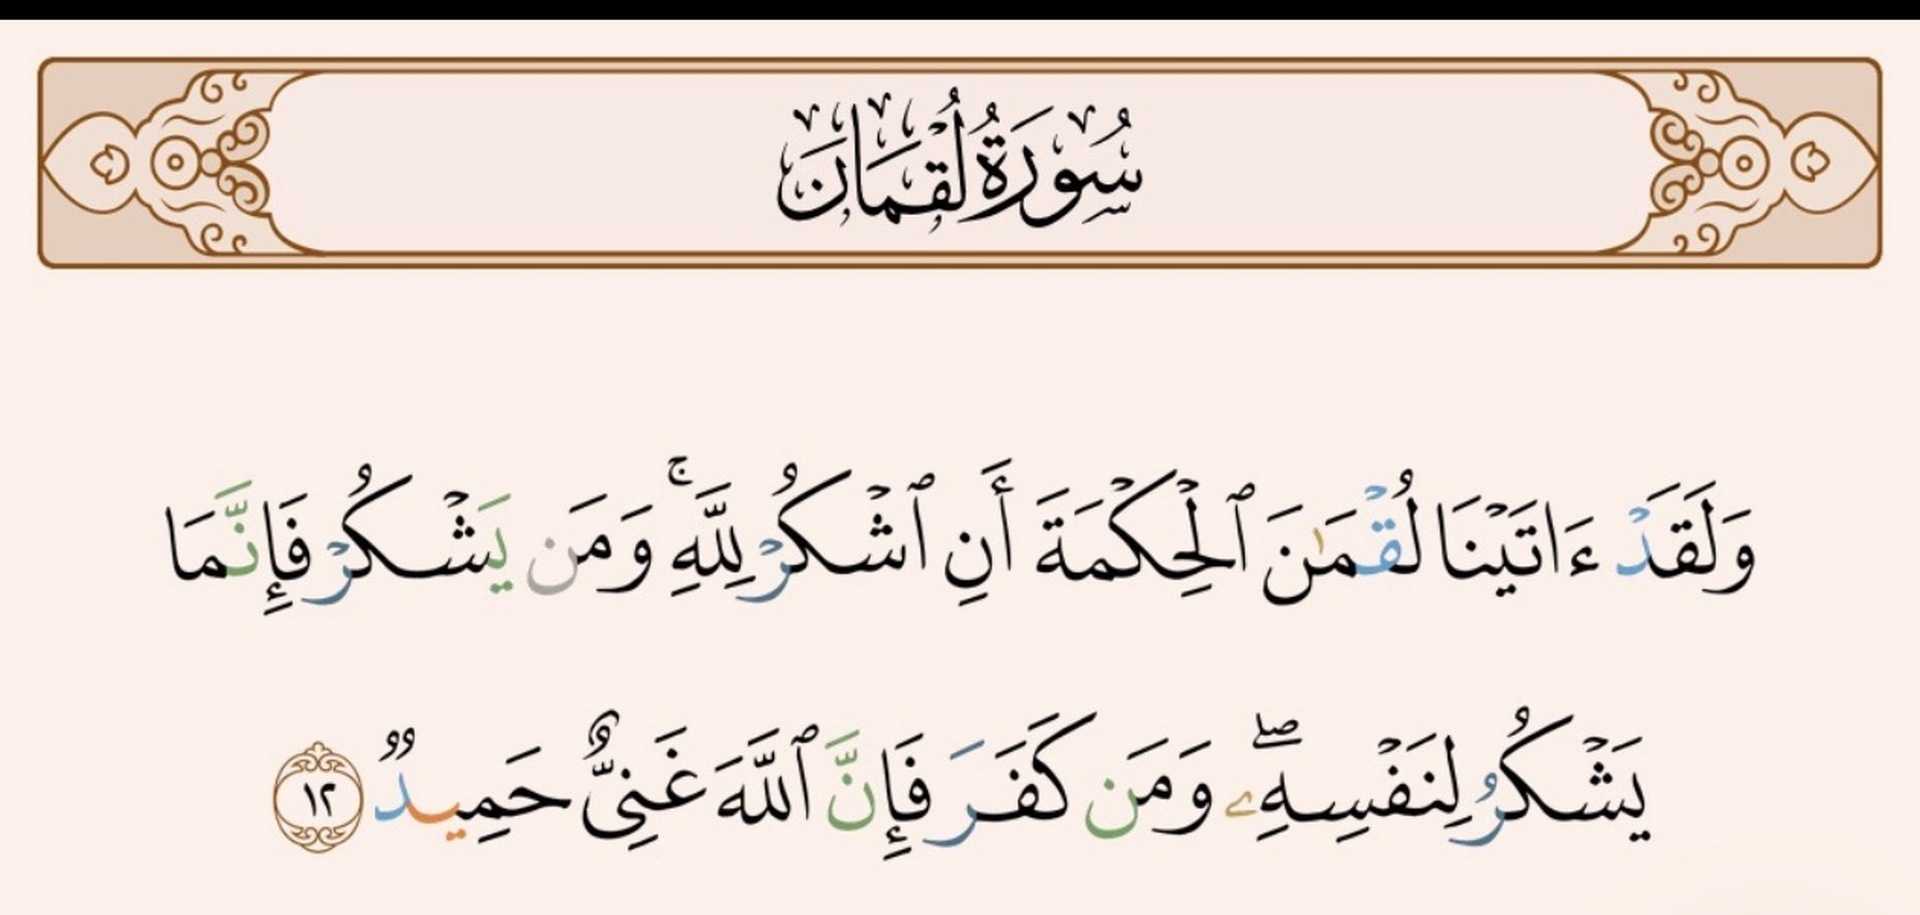 سُورَةُ لُقْمَانَ
وَلَقَدْ ءَاتَيْنَا لُقْمَٰنَ ٱلْحِكْمَةَ أَنِ ٱشْكُرْ لِلَّهِۚ وَمَن يَشْكُرْ فَإِنَّمَا
يَشْكُرُ لِنَفْسِهِۦۖ وَمَن كَفَرَ فَإِنَّ ٱللَّهَ غَنِىٌّ حَمِيدٌ ١٢